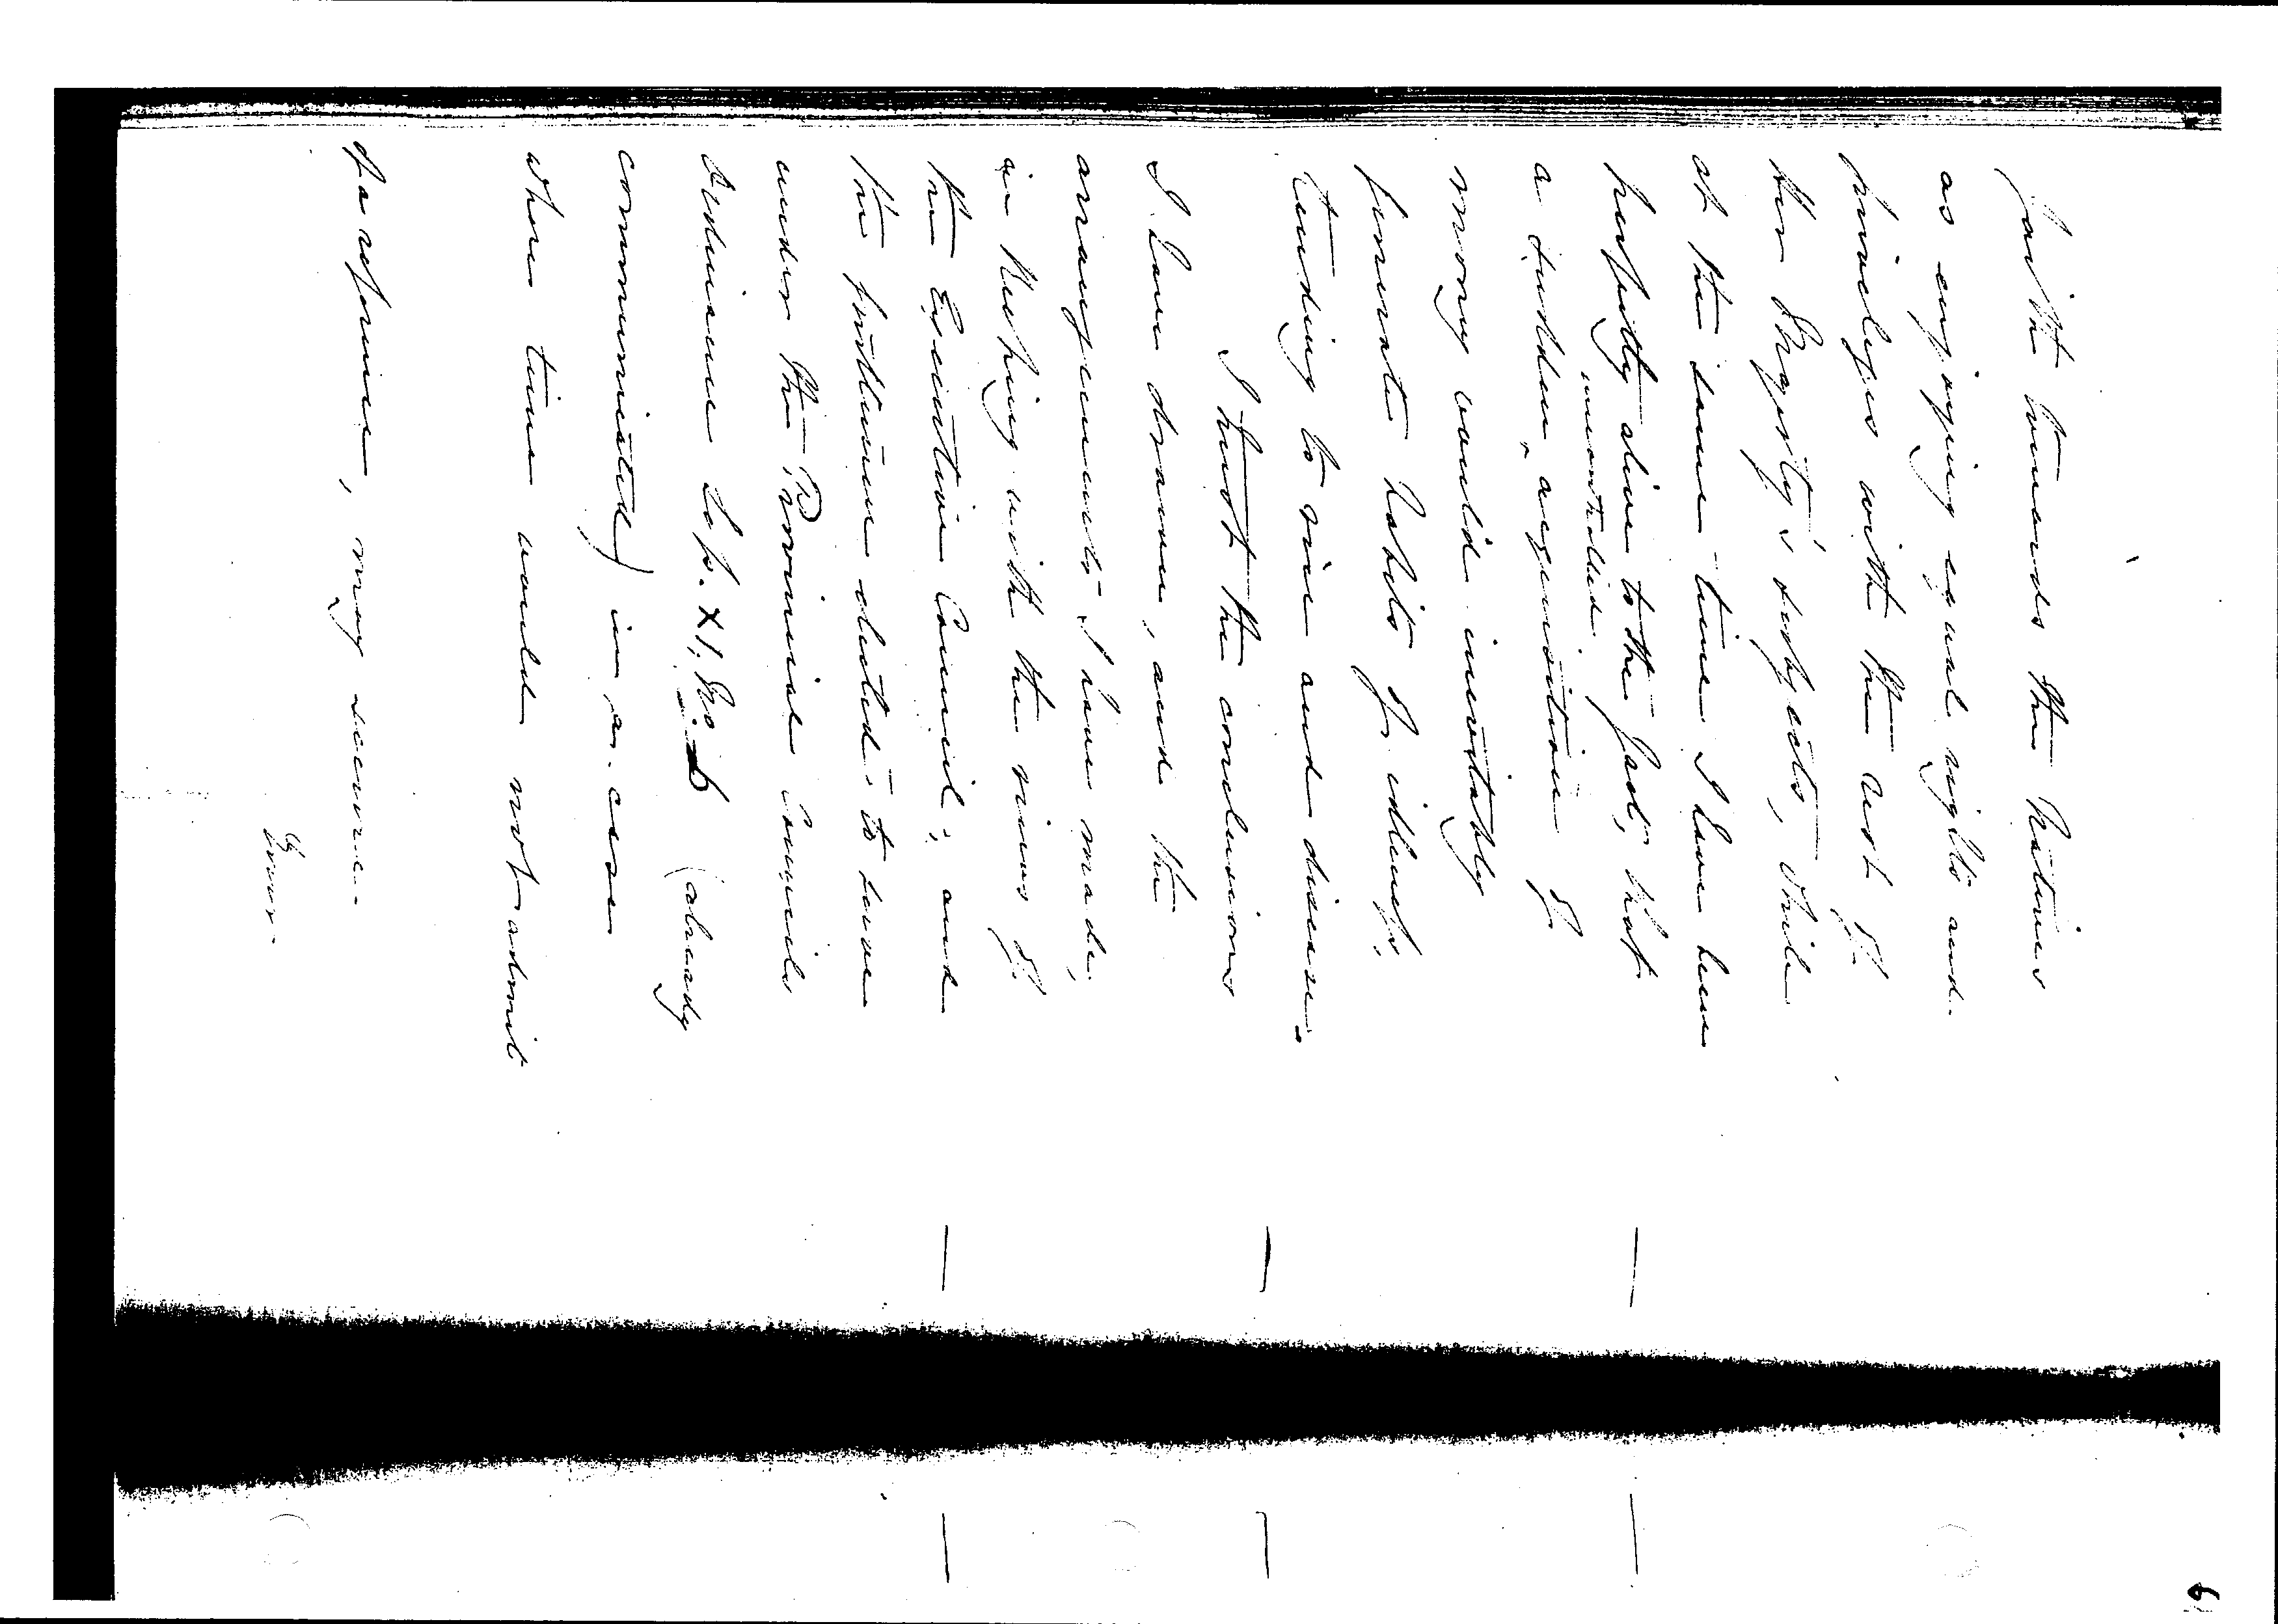 faith towards the Natives
as enjoying equal rights and
privileges with the rest of
Her Majesty's subjects, while
at the same time I have been
perfectly alive to the fact, that
uncontrolled
a sudden ^ acquisition of
money would inevitably
generate habits of idleness,
tending to vice and disease.
I trust the conclusions
I have drawn, and the
arrangements I have made,
in keeping with the views of
the Executive Council; and
the gentlemen elected to serve
under the Provincial Councils
Ordinance Sess. XI. No 6 (already
communicated) in a case
where time would not admit
of a reference, may secure